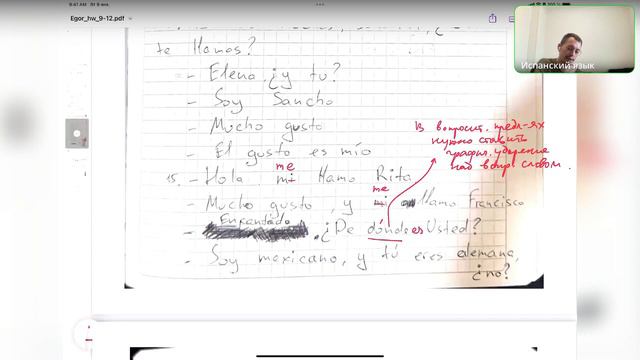 9:41 AM Пт 9 янв.
100 %
Egor_hw_9-12.pdf
te llamas?
- Elena, ¿y tu?
- Soy Sancho
- Mucho gusto
- El gusto es mío
me
15. - Hola mi llamo Rita
me
- Mucho gusto, y mi llamo Francisco
- Encantado. ¿De dónde es Usted?
- Soy mexicano, y tú eres alemana,
¿no?
В вопросит. предл-ях
нужно ставить
график. ударение
над вопр. словом.
Испанский язык